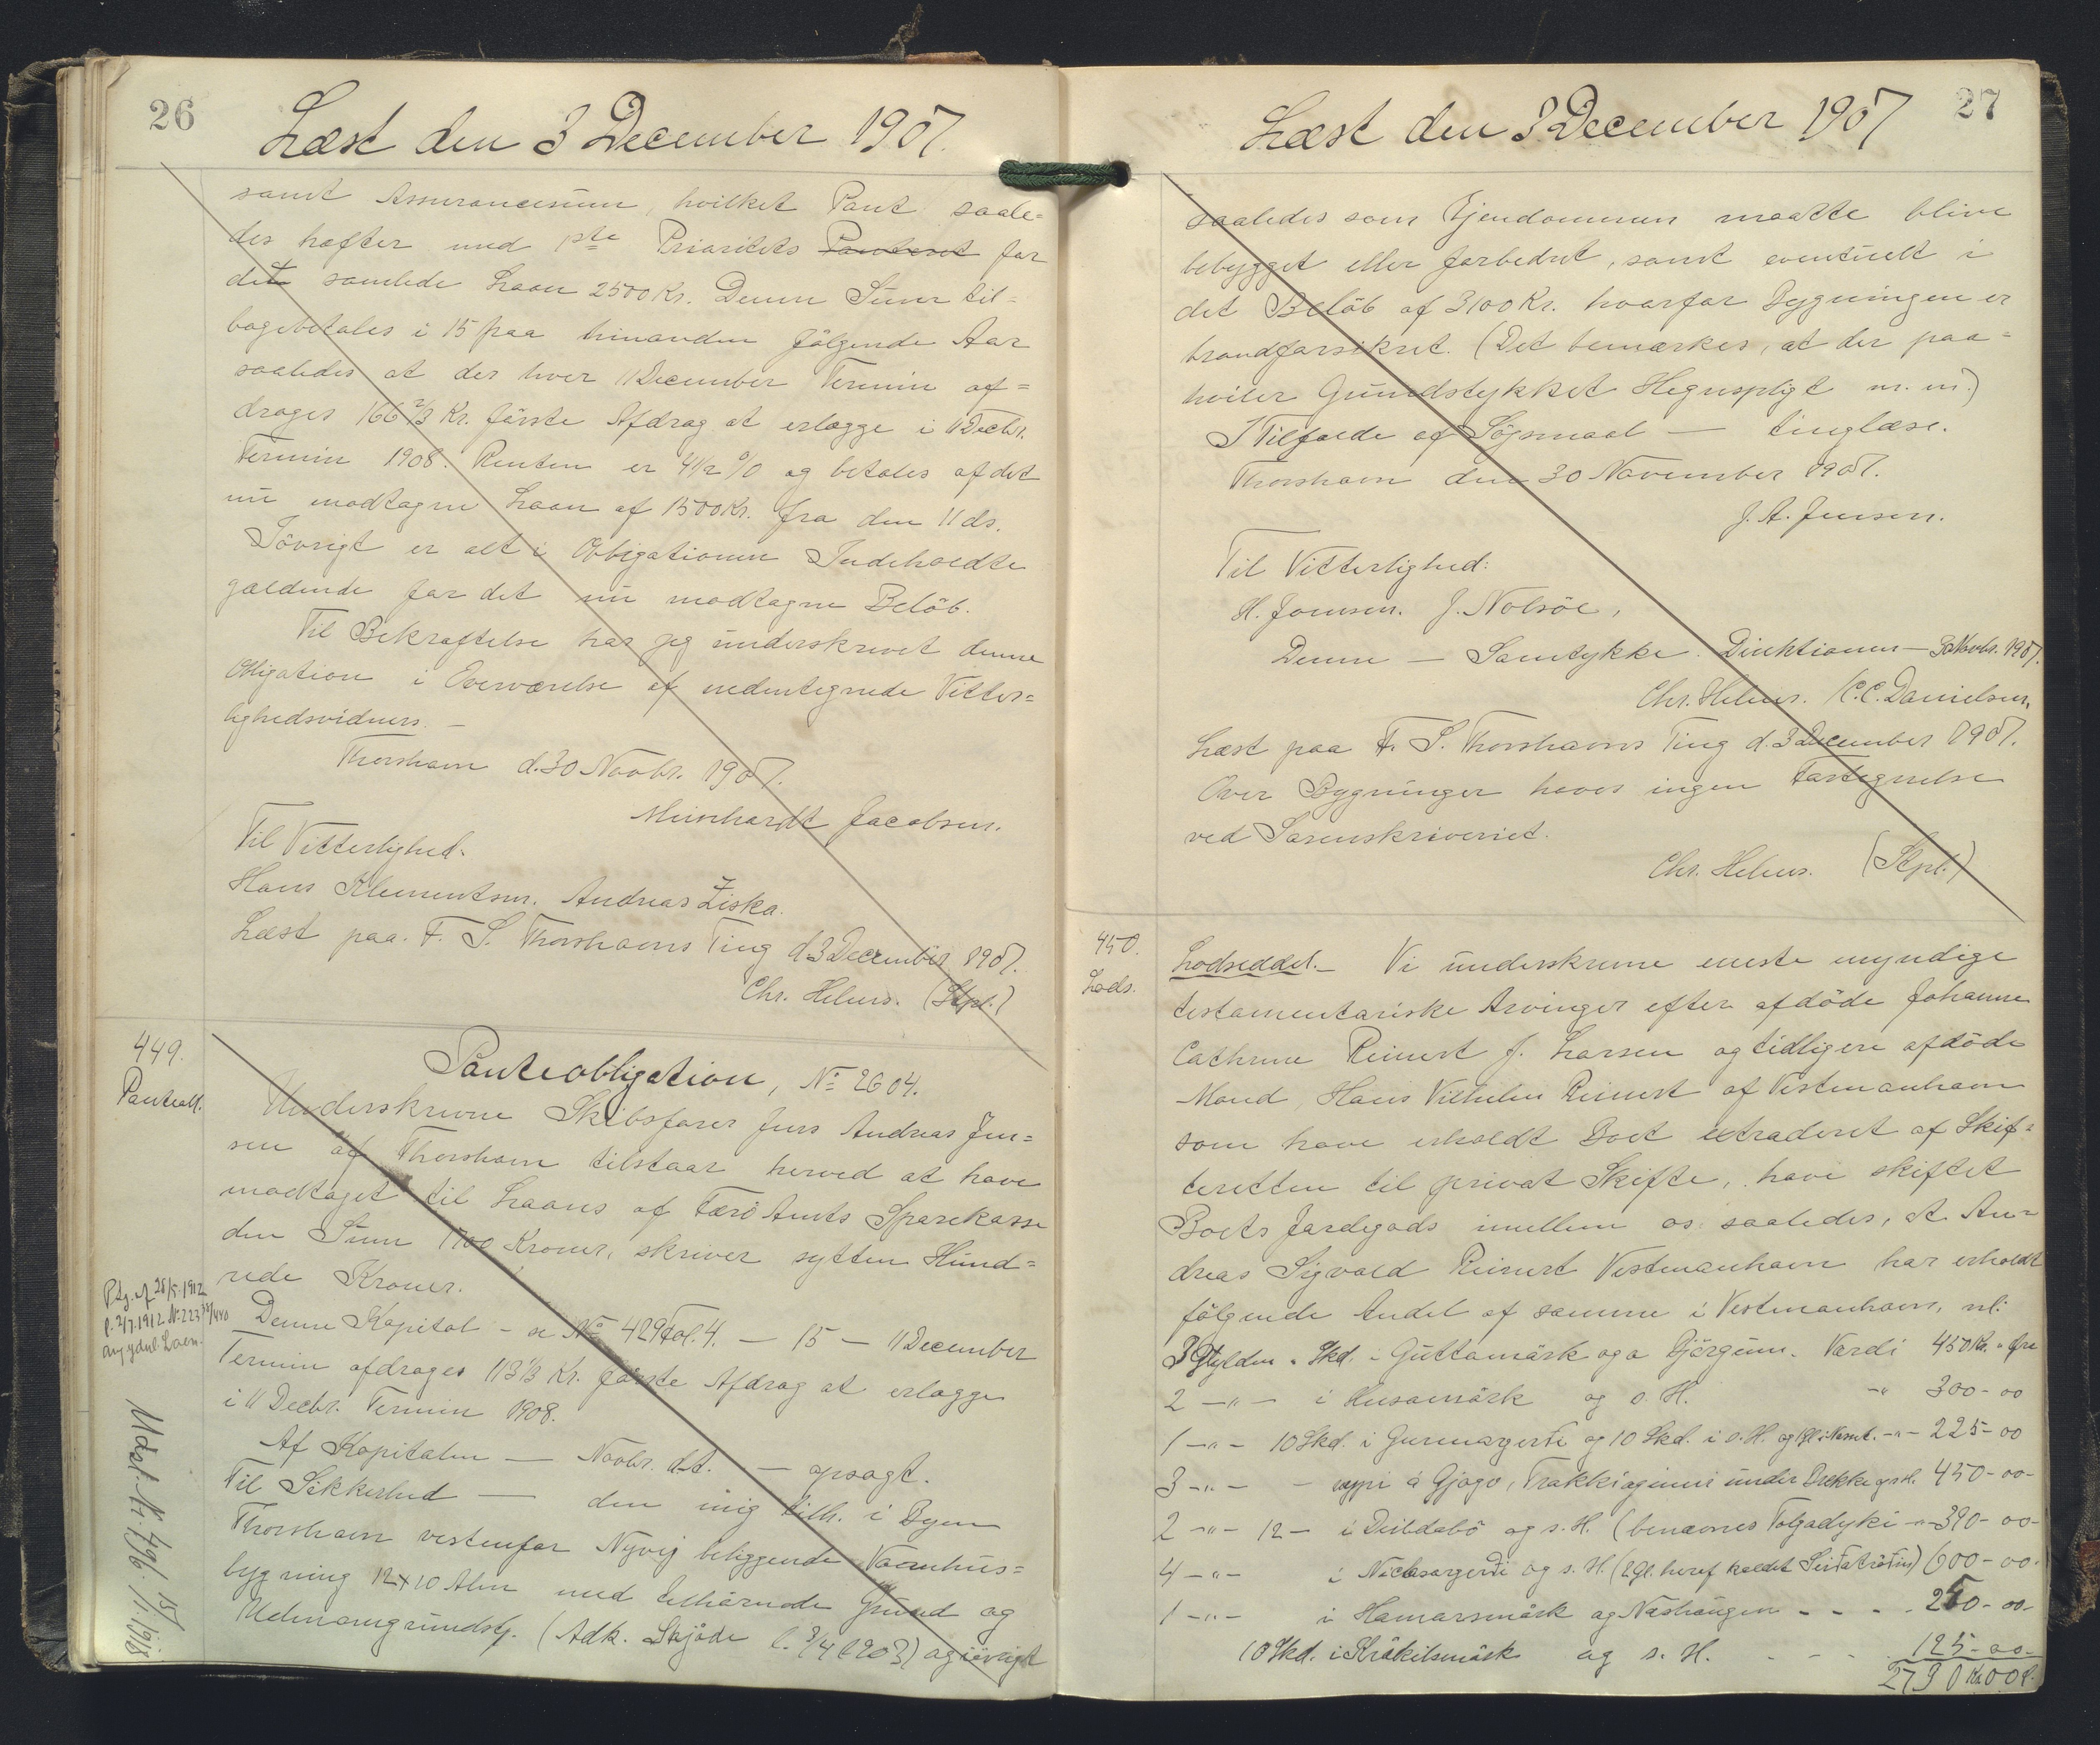 26
Læst den 3 December 1907.
samt Assurancesum, hvilket Pant saale=
des hæfter med 1ste Prioritets Panteret for
det samlede Laan 2500 Kr. Denne Sum til=
bagebetales i 15 paa hinanden følgende Aar
saaledes at der hver 11 December Termin af=
drages 166 2/3 Kr. første Afdrag at erlægge i 11 Decbr.
Termin 1908. Renten er 4 1/2 % og betales af det
nu modtagne Laan af 1500 Kr. fra den 11 ds.
Iøvrigt er alt i Obligationen Indeholdte
gældende for det nu modtagne Beløb.
Til Bekræftelse har jeg underskrevet denne
Obligation i Overværelse af nedentegnede Vitter=
lighedsvidners. —
Thorshavn d. 30 Novbr. 1907.
Meinhardt Jacobsen.
Til Vitterlighed.
Hans Klementsen. Andreas Ziska.
Læst paa F. S. Thorshavns Ting d. 3 December 1907.
Chr. Helms. (Stpl.)
449.
Panteobl.
Panteobligation, No 2604.
Underskrevne Skibsfører Jens Andreas Jen=
sen af Thorshavn tilstaar herved at have
modtaget til Laans af Færø Amts Sparekasse
den Sum 1700 Kroner, skriver sytten Hund=
rede Kroner.
Denne Kapital - se No 429 Fol. 4. — 15 — 11 December
Termin afdrages 113 1/3 Kr. første Afdrag at erlægge
i 11 Decbr. Termin 1908.
Af Kapitalen — Novbr. d.A. — opsagt.
Til Sikkerhed — den mig tilh. i Byen
Thorshavn vestenfor Nyvej beliggende Vaanhus=
bygning 12 x 10 Alen med tilhørende Grund og
Udmarsgrundst. (Adk. Skjøde l. 3/4 1903) og iøvrigt
Ptg. af 28/5 1912
l. 2/7 1912 No 223
ang ydul. Laan.
Udsl. Nr. 496. 15/11 1918
27
Læst den 3 December 1907
saaledes som Ejendommen maatte blive
bebygget eller forbedret, samt eventuelt i
det Beløb af 3100 Kr. hvorfor Bygningen er
brandforsikret. (Det bemærkes, at der paa=
hviler Grundstykket Hegnspligt m. m.)
I Tilfælde af Søgsmaal — tinglæse.
Thorshavn den 30 November 1907.
J. A. Jensen.
Til Vitterlighed:
H. Joensen. J. Nolsøe,
Denne — Samtykke. Direktionen — 30 Novbr. 1907.
Chr. Helms. /C. C. Danielsen,
Læst paa F. S. Thorshavns Ting d. 3 December 1907.
Over Bygninger haves ingen Fortegnelse
ved Sorenskriveriet.
Chr. Helms. (Stpl.)
450.
Lods.
Lodseddel. — Vi underskrevne eneste myndige
testamentariske Arvinger efter afdöde Johanne
Cathrine Reinert f. Larsen og tidligere afdöde
Mand Hans Vilhelm Reinert af Vestmanhavn
som have erholdt Boet extraderet af Skif=
teretten til privat Skifte, have skiftet
Boets Jordegods imellem os saaledes, at An=
dreas Sigvald Reinert Vestmanhavn har erholdt
følgende Andel af samme i Vestmanhavn, nl:
3 Gylden " Skd. i Guttamørk og a Bjørgum. Værdi 450 Kr. " Øre
2 —"— i Husamørk og s. H. —" 300-00
1 —"— 10 Skd. i Gurmagerði og 10 Skd. i s. H. —"— 225-00
3 —"— — uppi á Gjógv, Trakki og inni under Brekke og s. H. 450-00-
2 —"— 12 — i Deildabö og s. H. (benævnes Tolgadyki —"— 390-00-
4 —"— i Niclasargerði og s. H. (2 gl. heraf kaldet) 600-00-
1 —"— i Hamarsmørk og Næshaugen - - - - 250-00-
10 Skd. i Krákilsmørk og s. H. - - - 125-00-
2790 Kr. 00 Ø.